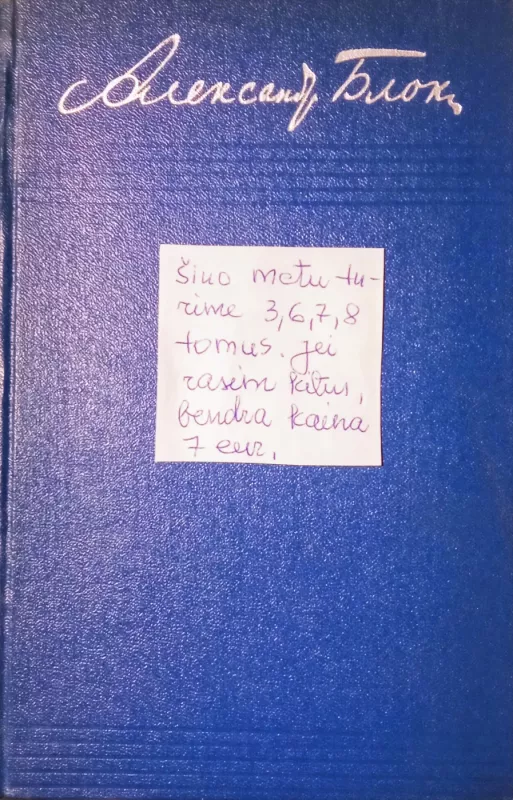 Александръ Блокъ
šiuo metu tu-
rime 3,6,7,8
tomus. jei
rasim kitus,
bendra kaina
7 eur.